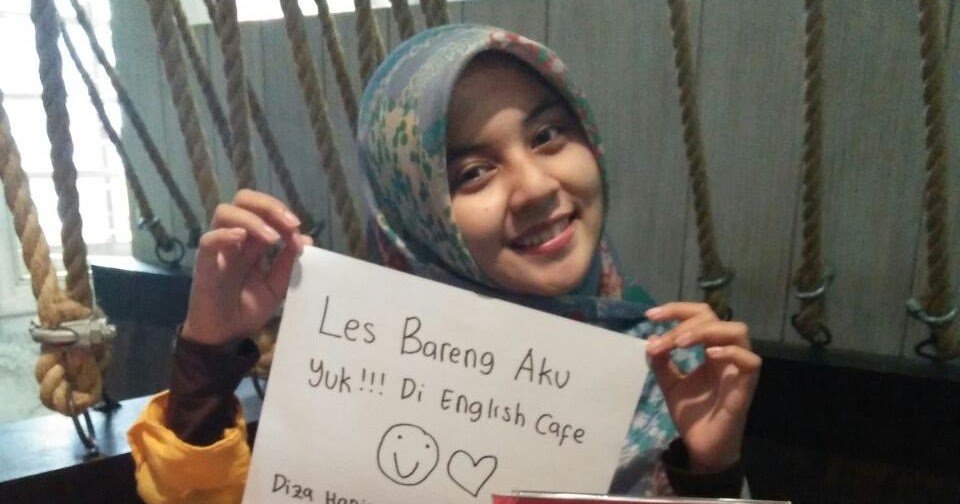 Les Bareng Aku
Yuk!!! Di English Cafe
Diza